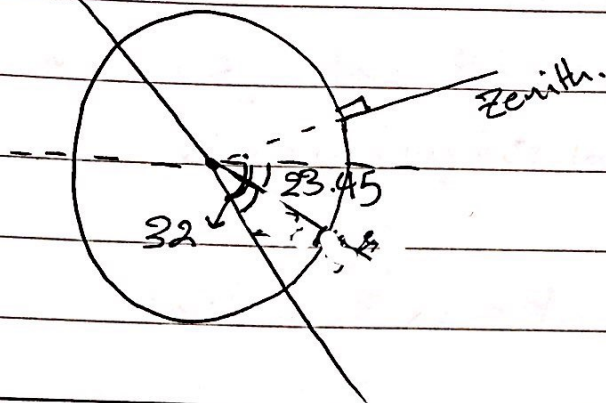 Zenith.
23.45
32